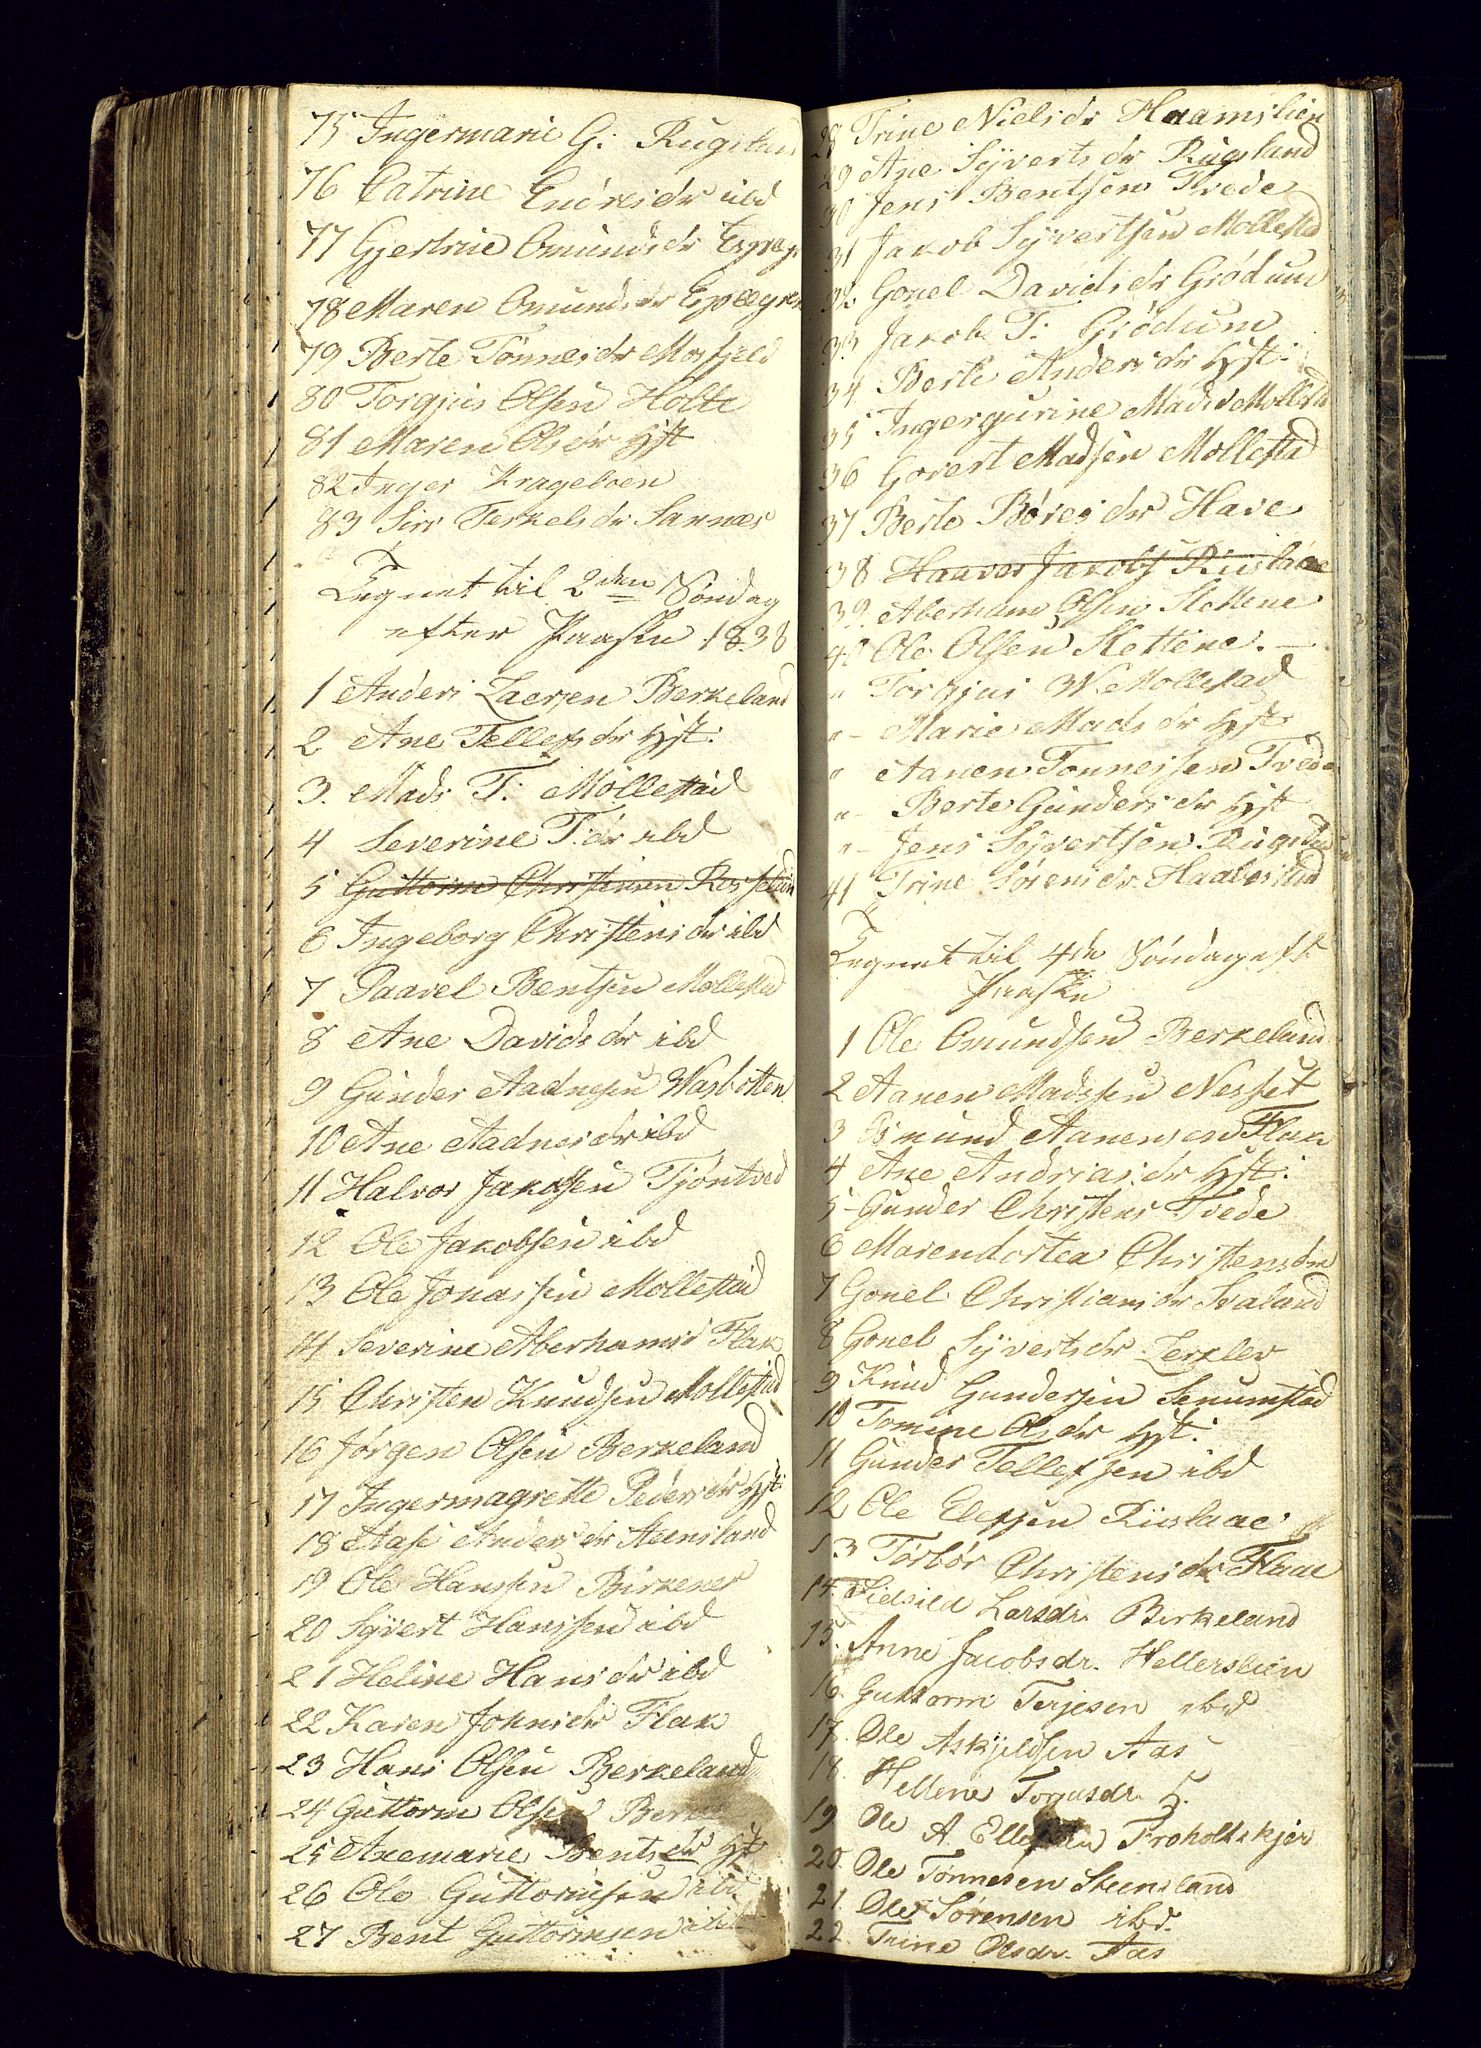 75 Ingermarie G: Rugslan
76 Catrine Endresdr ibd
77 Gjertrue Omundsdr
78 Maren Omundsdr Epleegren
79 Berte Tønnesdr Mosfjeld
80 Torgjus Olsen Holte
81 Maren Olsdr Hst
82 Inger Krageboen
83 Siri Terkelsdr Sarnæs
Tegnet til 2den Søndag
efter Paaske 1838
1 Anders Laersen Berkeland
2 Ane Tellefsdr Hst:
3. Mads T: Mollestad
4 Severine T:dr ibd
5 Guttorm Christensen
6 Ingeborg Christensdr ibd
7 Paavel Bentsen Mollestad
8 Ane Davidsdr ibd
9 Gunder Aadnesen Wasbotten
10 Ane Aadnesdr ibd
11 Halvor Jakobsen Tjøntved
12 Ole Jakobsen ibd
13 Ole Jonassen Mollestad
14 Severine Aberhamsd Flak
15 Christen Knudsen Mollestad
16 Jørgen Olsen Berkeland
17 Ingermagrette Pedersdr Hst:
18 Aase Andersdr Steensland
19 Ole Hanssen Birkenes
20 Syvert Hanssen ibd
21 Heline Hansdr ibd
22 Karen Johnsdr Flak
23 Hans Olsen Berkeland
24 Guttorm Olsen
25 Anemarie Bentsdr Hst
26 Ole Guttormsen ibd
27 Bent Guttormsen ibd
28 Trine Nielsdr Haamslien
29 Ane Syvertsdr Rugsland
30 Jens Bentsen Tvede
31 Jakob Syvertsen Mollestad
32 Gonel Davidsdr Grødum
33 Jakob T: Grødum
34 Berte Andersdr Hst:
35 Ingergurine Madsd Mollestd
36 Govert Madsen Mollestad
37 Berte Børesdr Have
38 Jakobs Riislaae
39. Aberham Olsen Slettene
40 Ole Olsen Slettene. —
" Torgjus W. Mollestad
" - Marie Madsdr Hst
" Aanen Tønnessen Tvede
" - Berte Gundersdr Hst
" - Jens Syvertsen Rugsland
41 Trine Sørensdr Haabestad
Tegnet til 4de Søndag eft
Paaske
1 Ole Omundsen Berkeland
2 Aanen Madssen Nesset
3 Osmund Aanensen Flak
4 Ane Andriasdr Hst:
5 Gunder Christens Tvede
6 Marendortea Christensdr
7 Gonel Christiansdr Svaland
8 Gonel Syvertsdr Lerklev
9 Knud Gundersen Senumstad
10 Tomine Olsdr Hst:
11 Gunder Tellefsen ibd
12 Ole Elefsen Riislaae
13 Torbor Christensdr Flaae
14. Sidsild Larsdr. Birkeland
15. Anne Jacobsdr. Hellerslien
16. Guttorm Terjesen ibd
17. Ole Askjeldsen Aas
18. Hellene Torjusdr. H.
19 Ole A. Ellefsen Froholtskjer
20. Ole Tønnesen Steensland
21. Ole Sørensen ibd.
22. Trine Olsdr. Aas